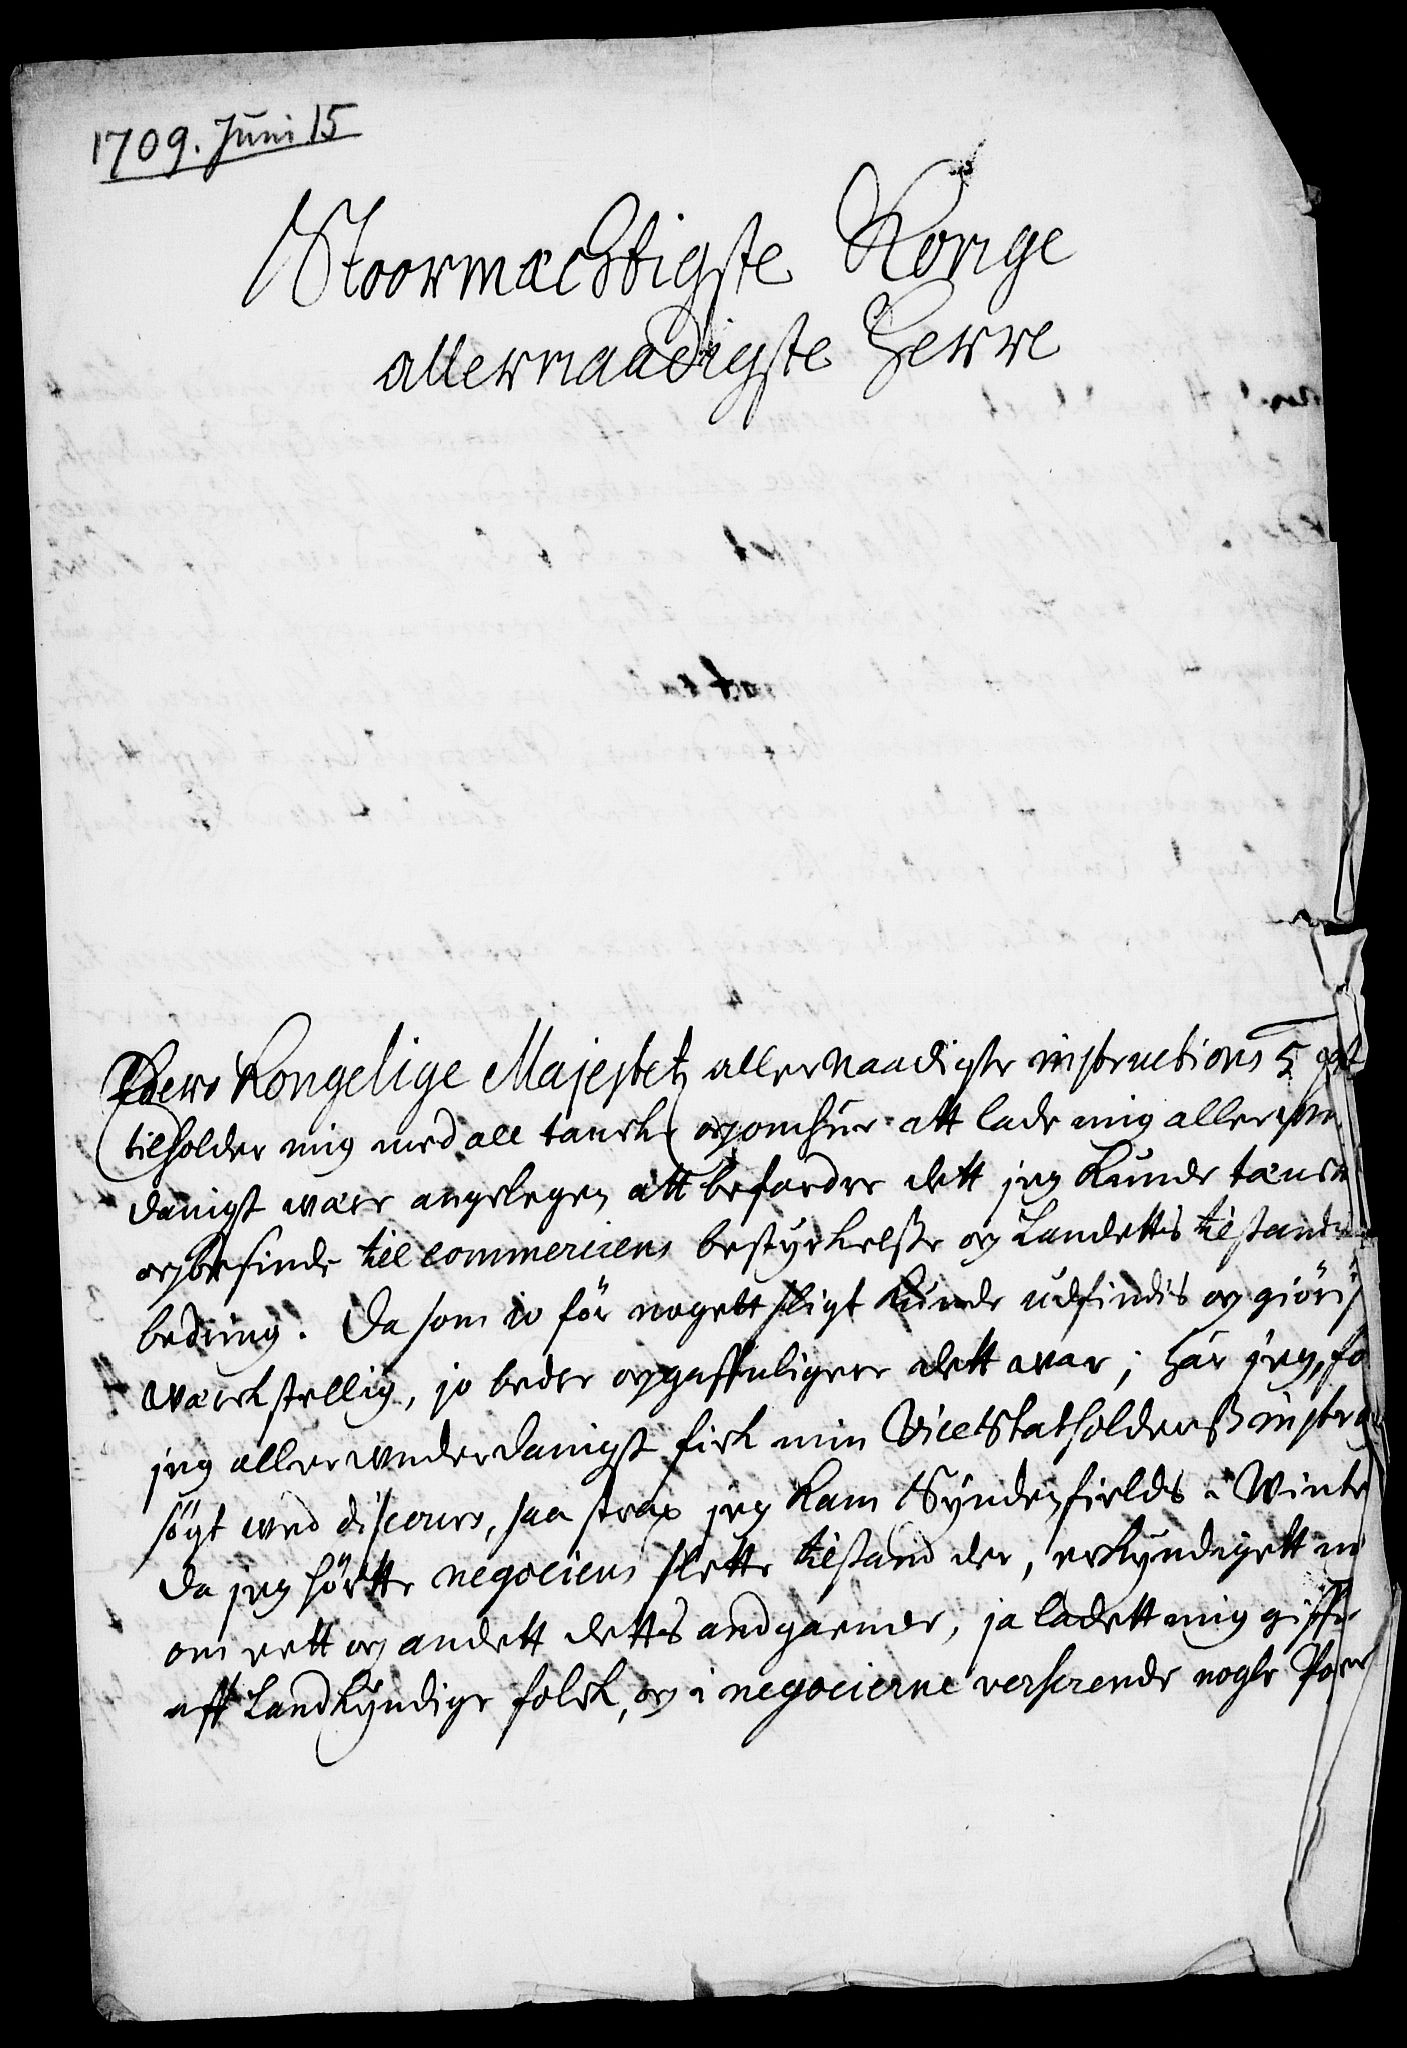 1709. Juni 15
Stoormæchtigste Konge
allernaadigste Herre
Eders Kongelige Majestets allernaadigste instructions 5 post
tilholder mig med all tanche og omhue att lade mig allerun
danigst være angelegen att befordre dett jeg kunde tænche
og befinde til commerciens bestyrkelsse og Landetts tilstands
bedring. Da som io før nogett sligt kunde udfindis og giøris
værkstellig, jo bedre og gaffnligere dett var; har jeg, fo
jeg allerunderdanigst fick min ViceStatholderß instru
søgt ved discours, saa strax jeg kam Syndenfields i Winte
da jeg hørtte negociens slette tilstand der, erkyndigett mi
om rett og andett dette angaaende, ja ladett mig giffve
aff Landkyndige folck, og i negocierne verserende nogle Poer